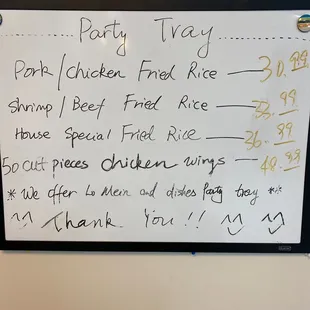 Party Tray
Pork/Chicken Fried Rice — 30.99
Shrimp/Beef Fried Rice — 33.99
House Special Fried Rice — 36.89
50 cut pieces chicken wings — 48.88
* We offer Lo Mein and dishes Party tray **
^^ Thank You!! ^^ ^^